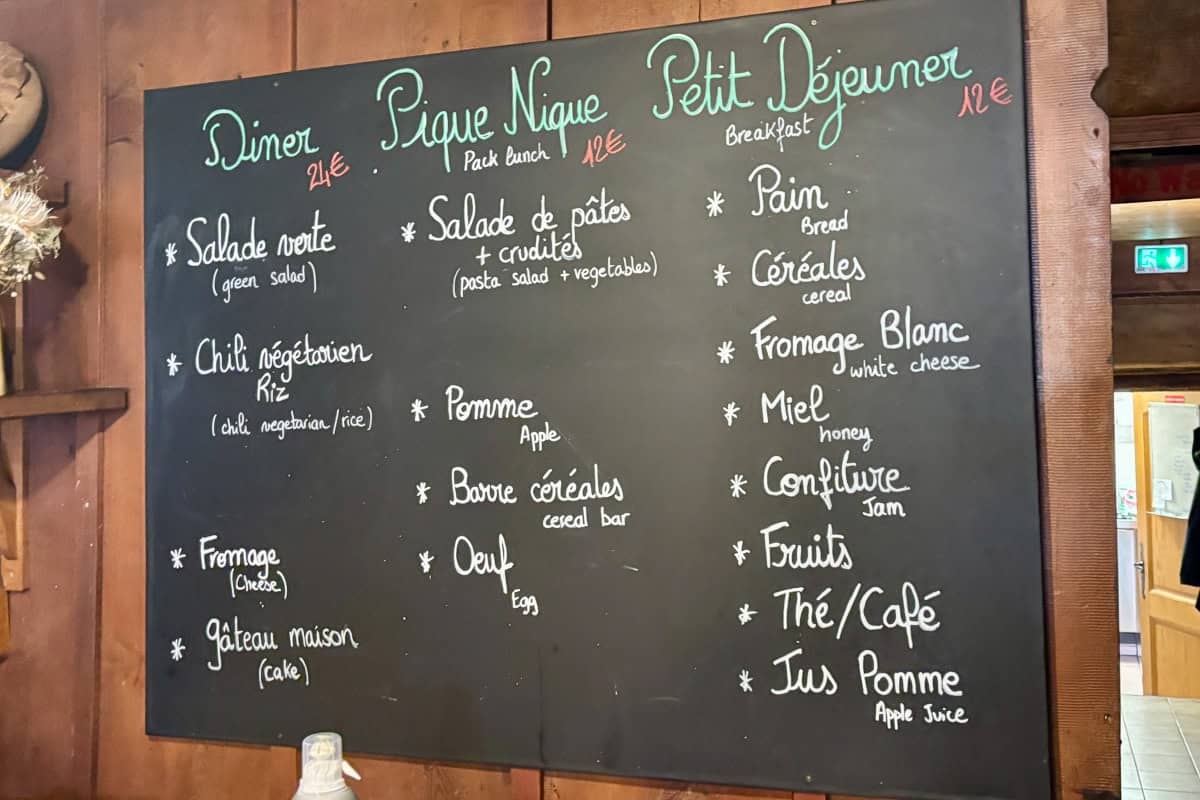 Diner
24€
* Salade verte
(green salad)
* Chili végétarien
Riz
(chili vegetarian/rice)
* Fromage
(Cheese)
* gâteau maison
(cake)
Pique Nique
Pack Lunch
12€
* Salade de pâtes
+ crudités
(pasta salad + vegetables)
* Pomme
Apple
* Barre céréales
cereal bar
* Oeuf
Egg
Petit Déjeuner
Breakfast
12€
* Pain
Bread
* Céréales
cereal
* Fromage Blanc
white cheese
* Miel
honey
* Confiture
Jam
* Fruits
* Thé/Café
* Jus Pomme
Apple Juice